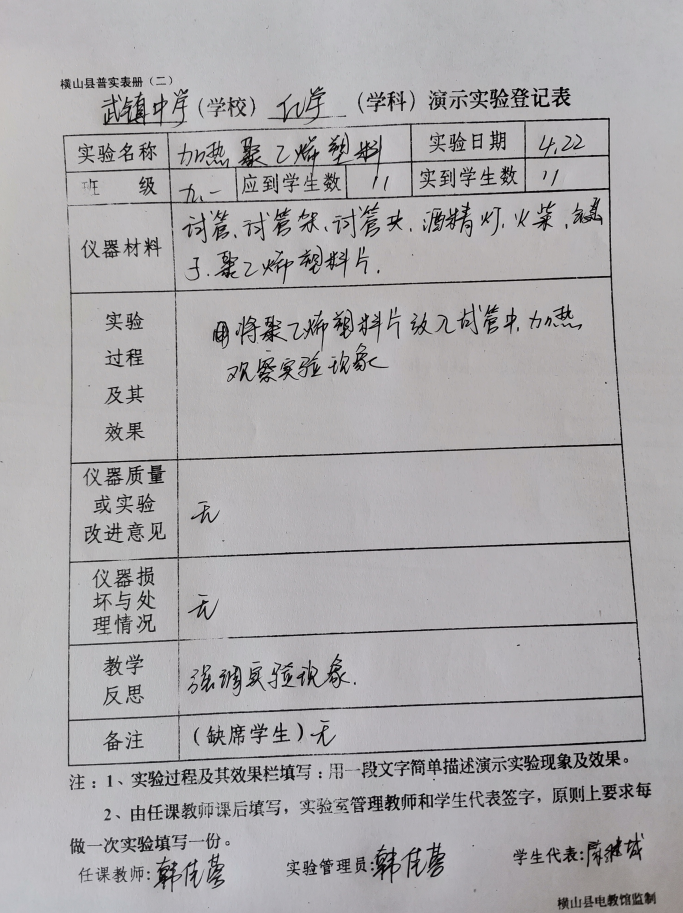 横山县普实表册（二）
武镇中学（学校） 化学 （学科）演示实验登记表
实验名称 加热聚乙烯塑料 实验日期 4.22
班 级 九.一 应到学生数 11 实到学生数 11
仪器材料 试管、试管架、试管夹、酒精灯、火柴、
子、聚乙烯塑料片.
实验
过程
及其
效果
将聚乙烯塑料片放入试管中，加热
观察实验现象
仪器质量
或实验
改进意见
无
仪器损
坏与处
理情况
无
教学
反思
强调实验现象.
备注 （缺席学生）无
注：1、实验过程及其效果栏填写：用一段文字简单描述演示实验现象及效果。
2、由任课教师课后填写，实验室管理教师和学生代表签字，原则上要求每
做一次实验填写一份。
任课教师: 韩佳蓉 实验管理员: 韩佳蓉 学生代表:
横山县电教馆监制